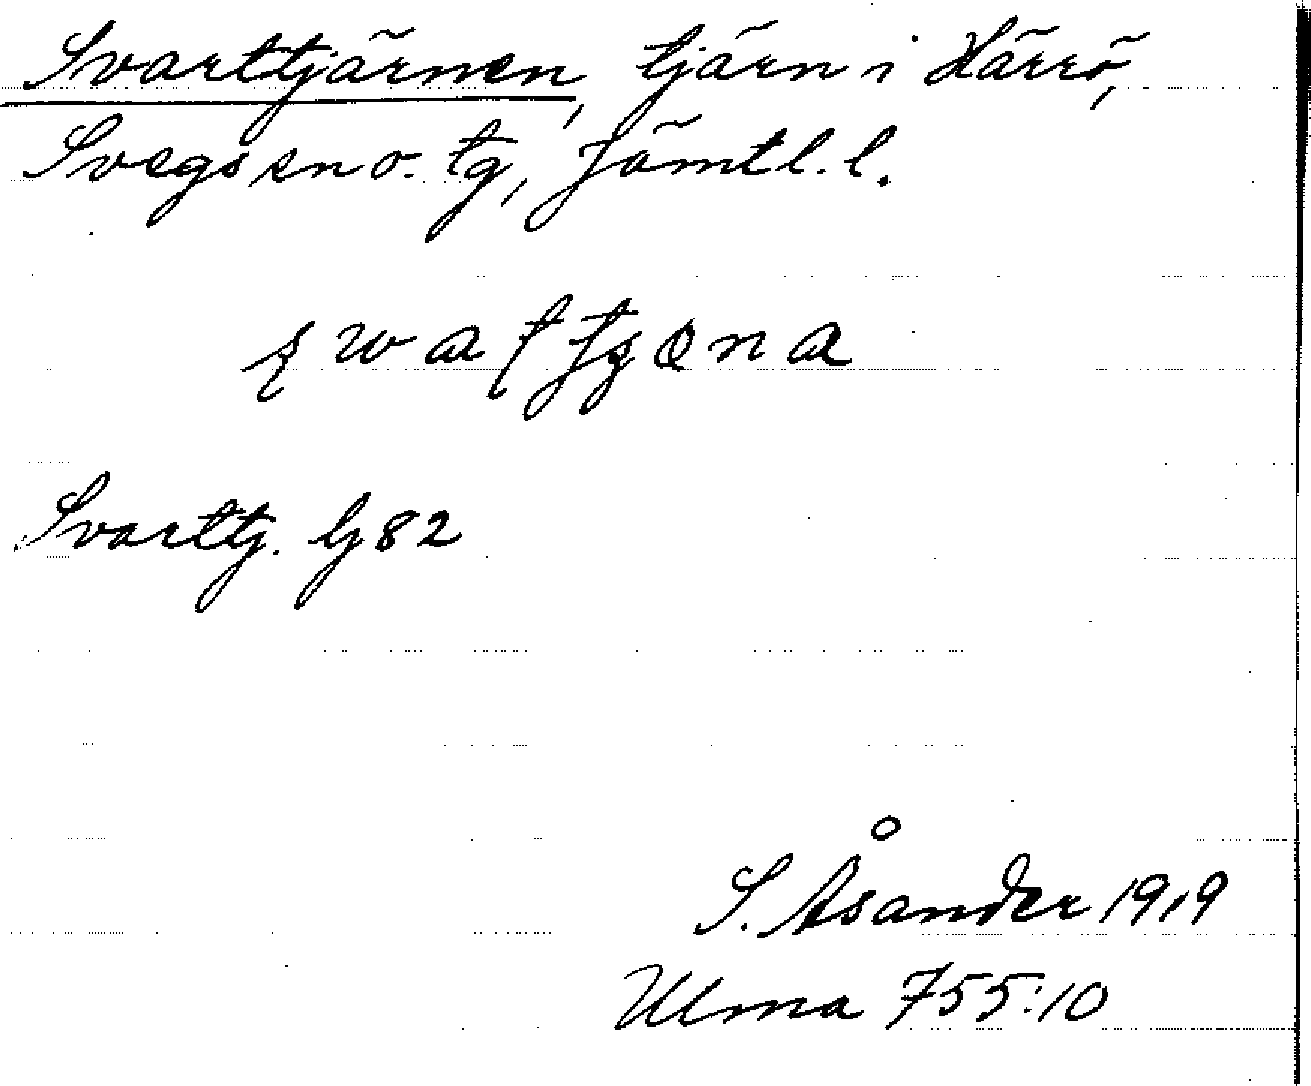 Svarttjärnen, tjärn i Härrö,
Svegs sn o. tg, Jämtl. l.
Svarttj. Gj 82
S. Åsander 1919
Ulma 755:10